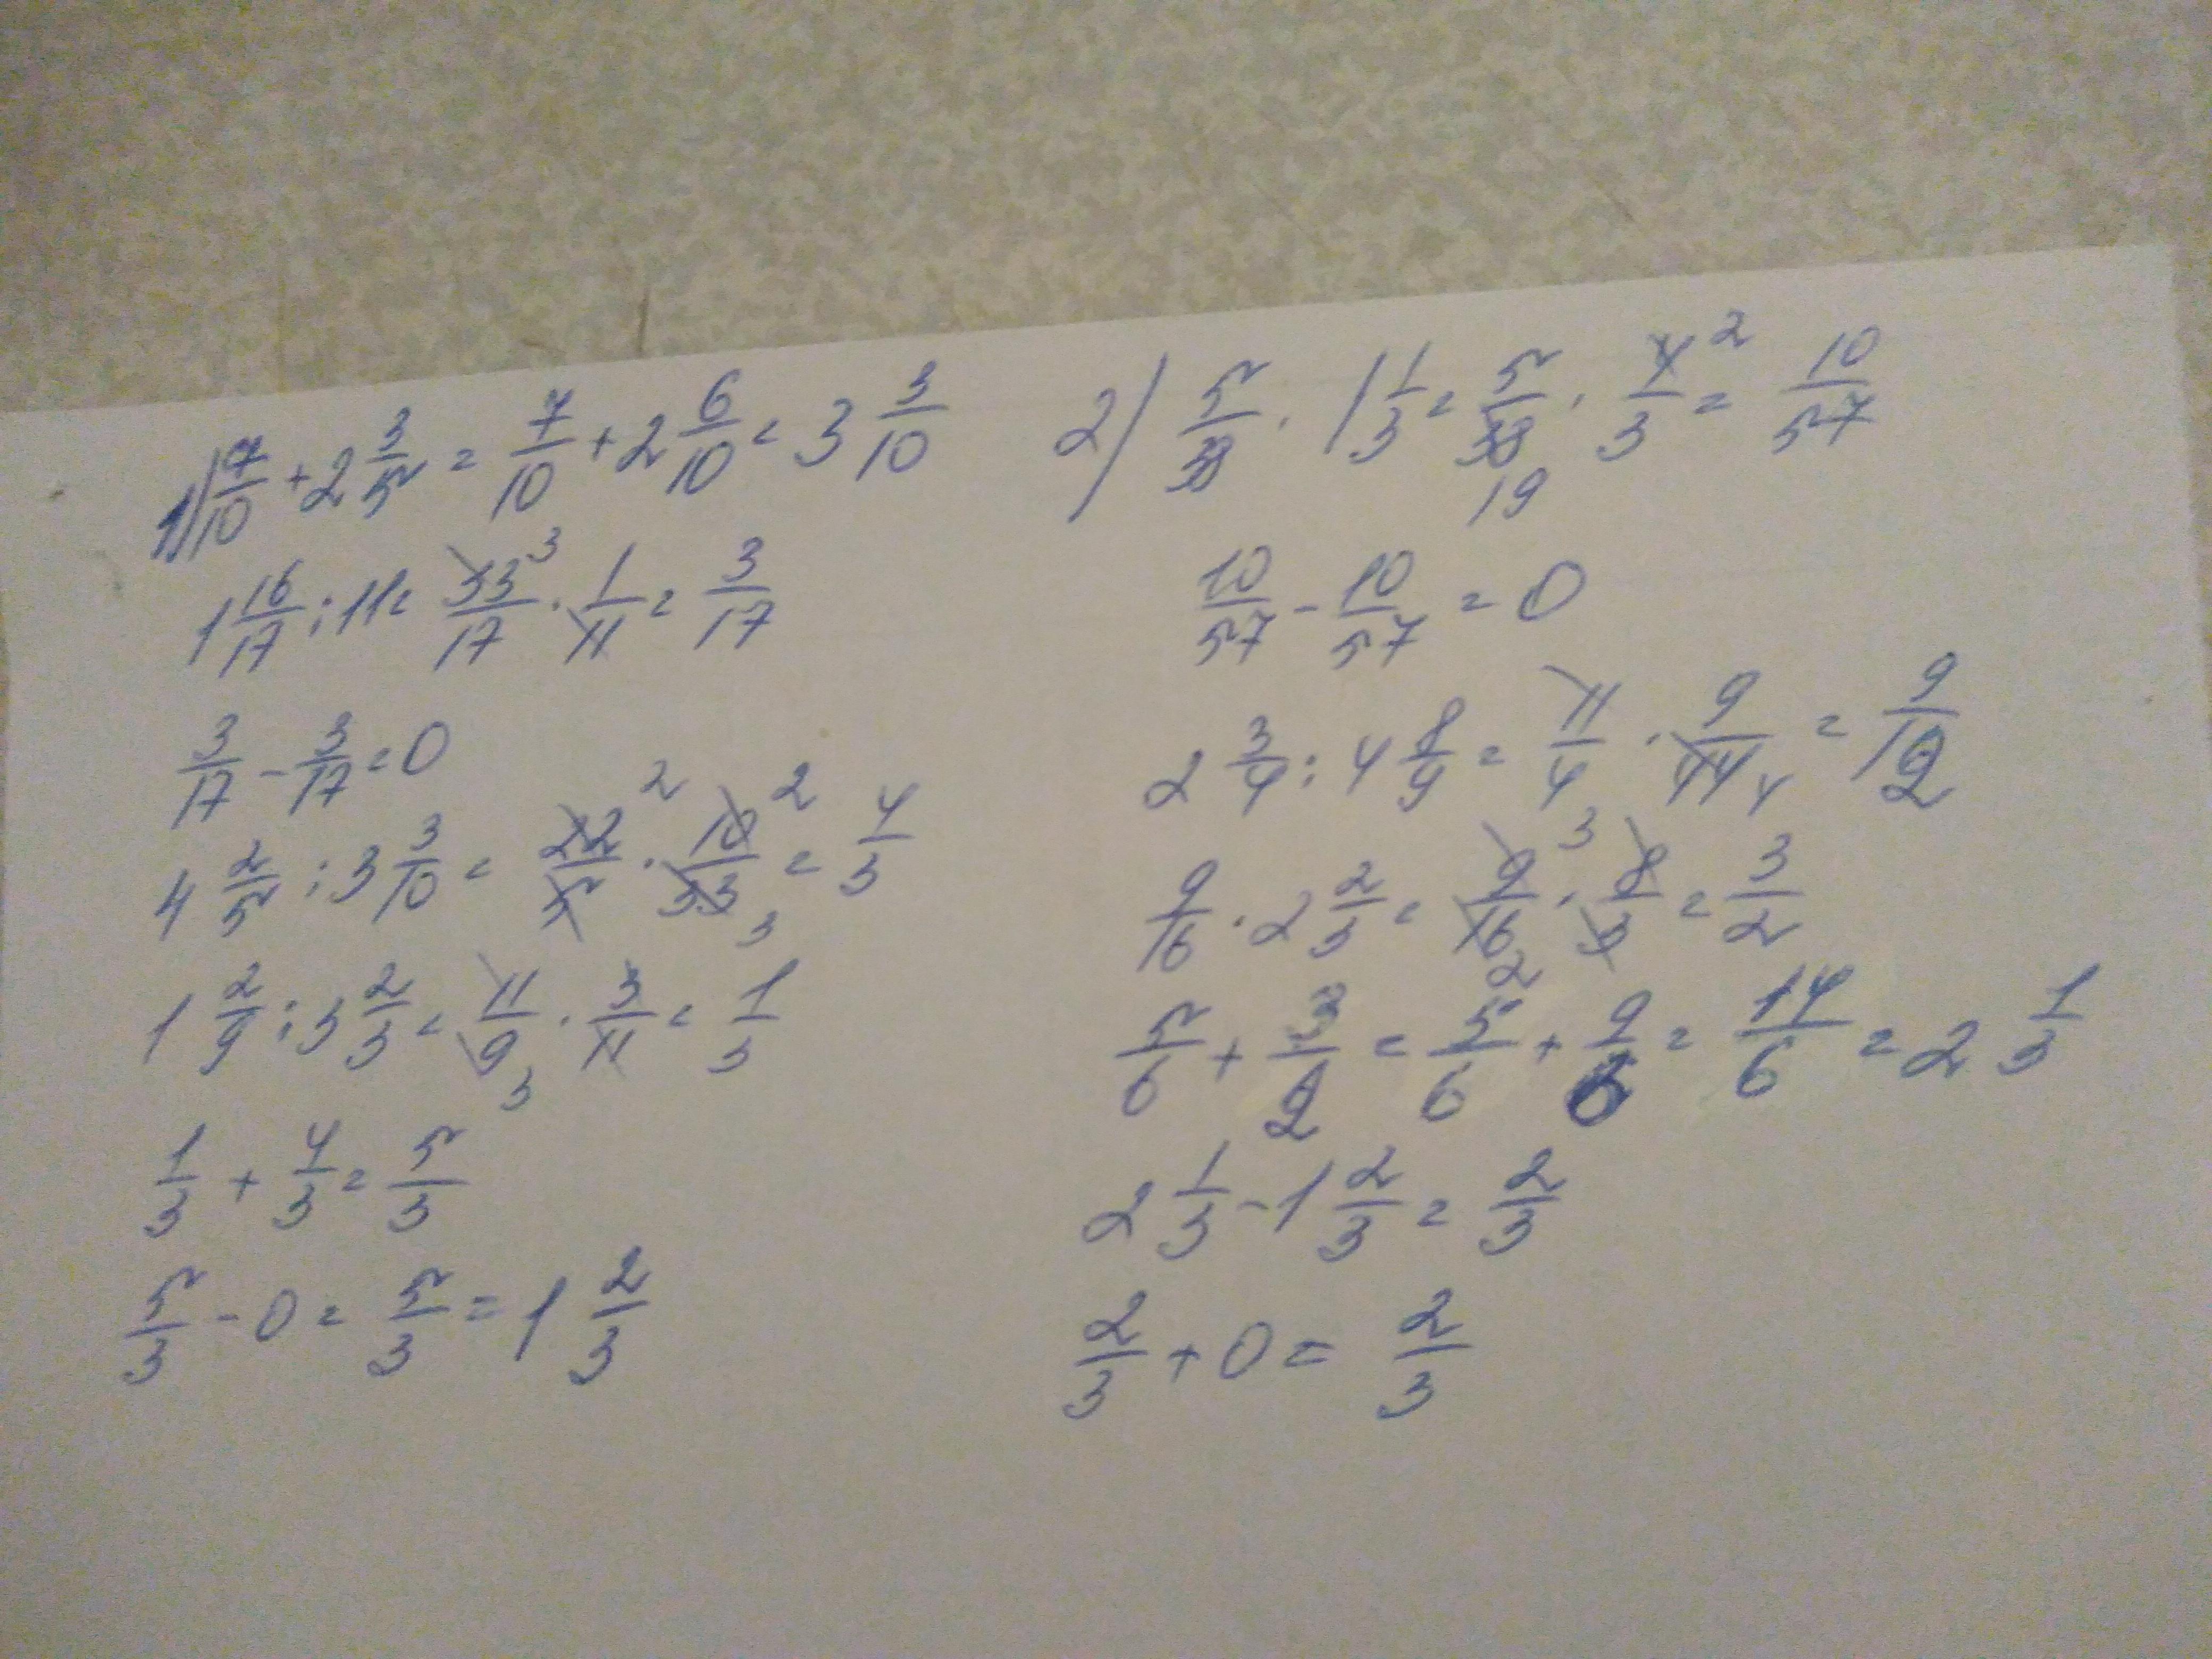 1) 7/10 + 2 3/5 = 7/10 + 2 6/10 = 3 3/10
1 16/17 : 11 = 33/17 · 1/11 = 3/17
3/17 - 3/17 = 0
4 2/5 : 3 3/10 = 22/5 · 10/33 = 4/3
1 2/9 : 3 2/3 = 11/9 · 3/11 = 1/3
1/3 + 4/3 = 5/3
5/3 - 0 = 5/3 = 1 2/3
2) 5/38 · 1 1/3 = 5/38 · 4/3 = 10/57
10/57 - 10/57 = 0
2 3/4 : 4 8/9 = 11/4 · 9/44 = 9/16
9/16 · 2 2/3 = 9/16 · 8/3 = 3/2
5/6 + 3/2 = 5/6 + 9/6 = 14/6 = 2 1/3
2 1/3 - 1 2/3 = 2/3
2/3 + 0 = 2/3